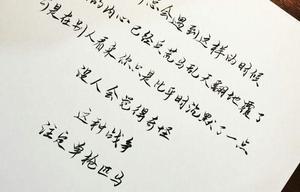 总会遇到这样的时候
的内心已经兵荒马乱天翻地覆了
可是在别人看来你只是比平时沉默了一点
没人会觉得奇怪
这种战争
注定单枪匹马